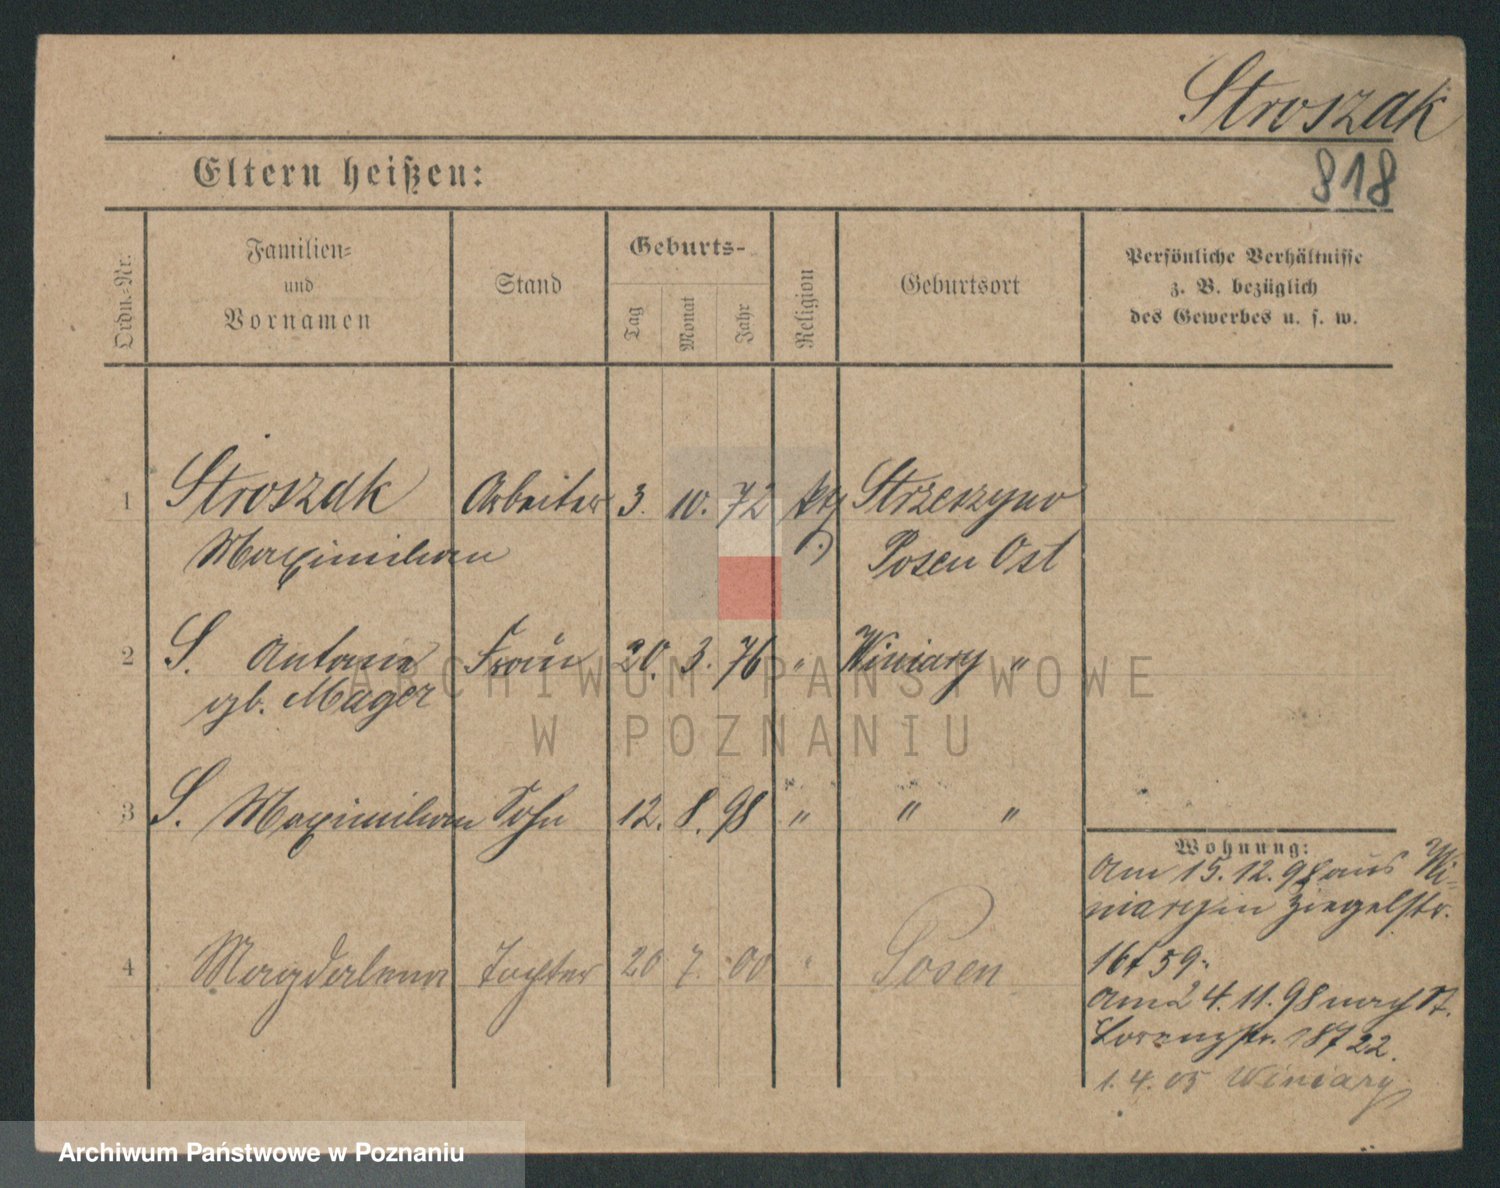 Stroszak
Eltern heißen:
818
Ordn.-Nr.
Familien-
und
Vornamen
Stand
Geburts-
Tag
Monat
Jahr
Religion
Geburtsort
Persönliche Verhältnisse
z. B. bezüglich
des Gewerbes u. s. w.
1 Stroszak Arbeiter 3. 10. 72 Strzeszyno
Maximilian Posen Ost
2 S. Antonie Frau 20. 3. 76 " Winiary "
gb. Mager
3 S. Maximilian Sohn 12. 8. 98 " " "
4 Magdalena Tochter 20 7. 00 " Posen
Wohnung:
Am 15. 12. 98 aus Wi-
niary in Ziegelstr.
16 f 59.
Am 24. 11. 98 nach St.
Lorenzstr. 18 f 22.
1. 4. 05 Winiary
ARCHIWUM PAŃSTWOWE
W POZNANIU
Archiwum Państwowe w Poznaniu